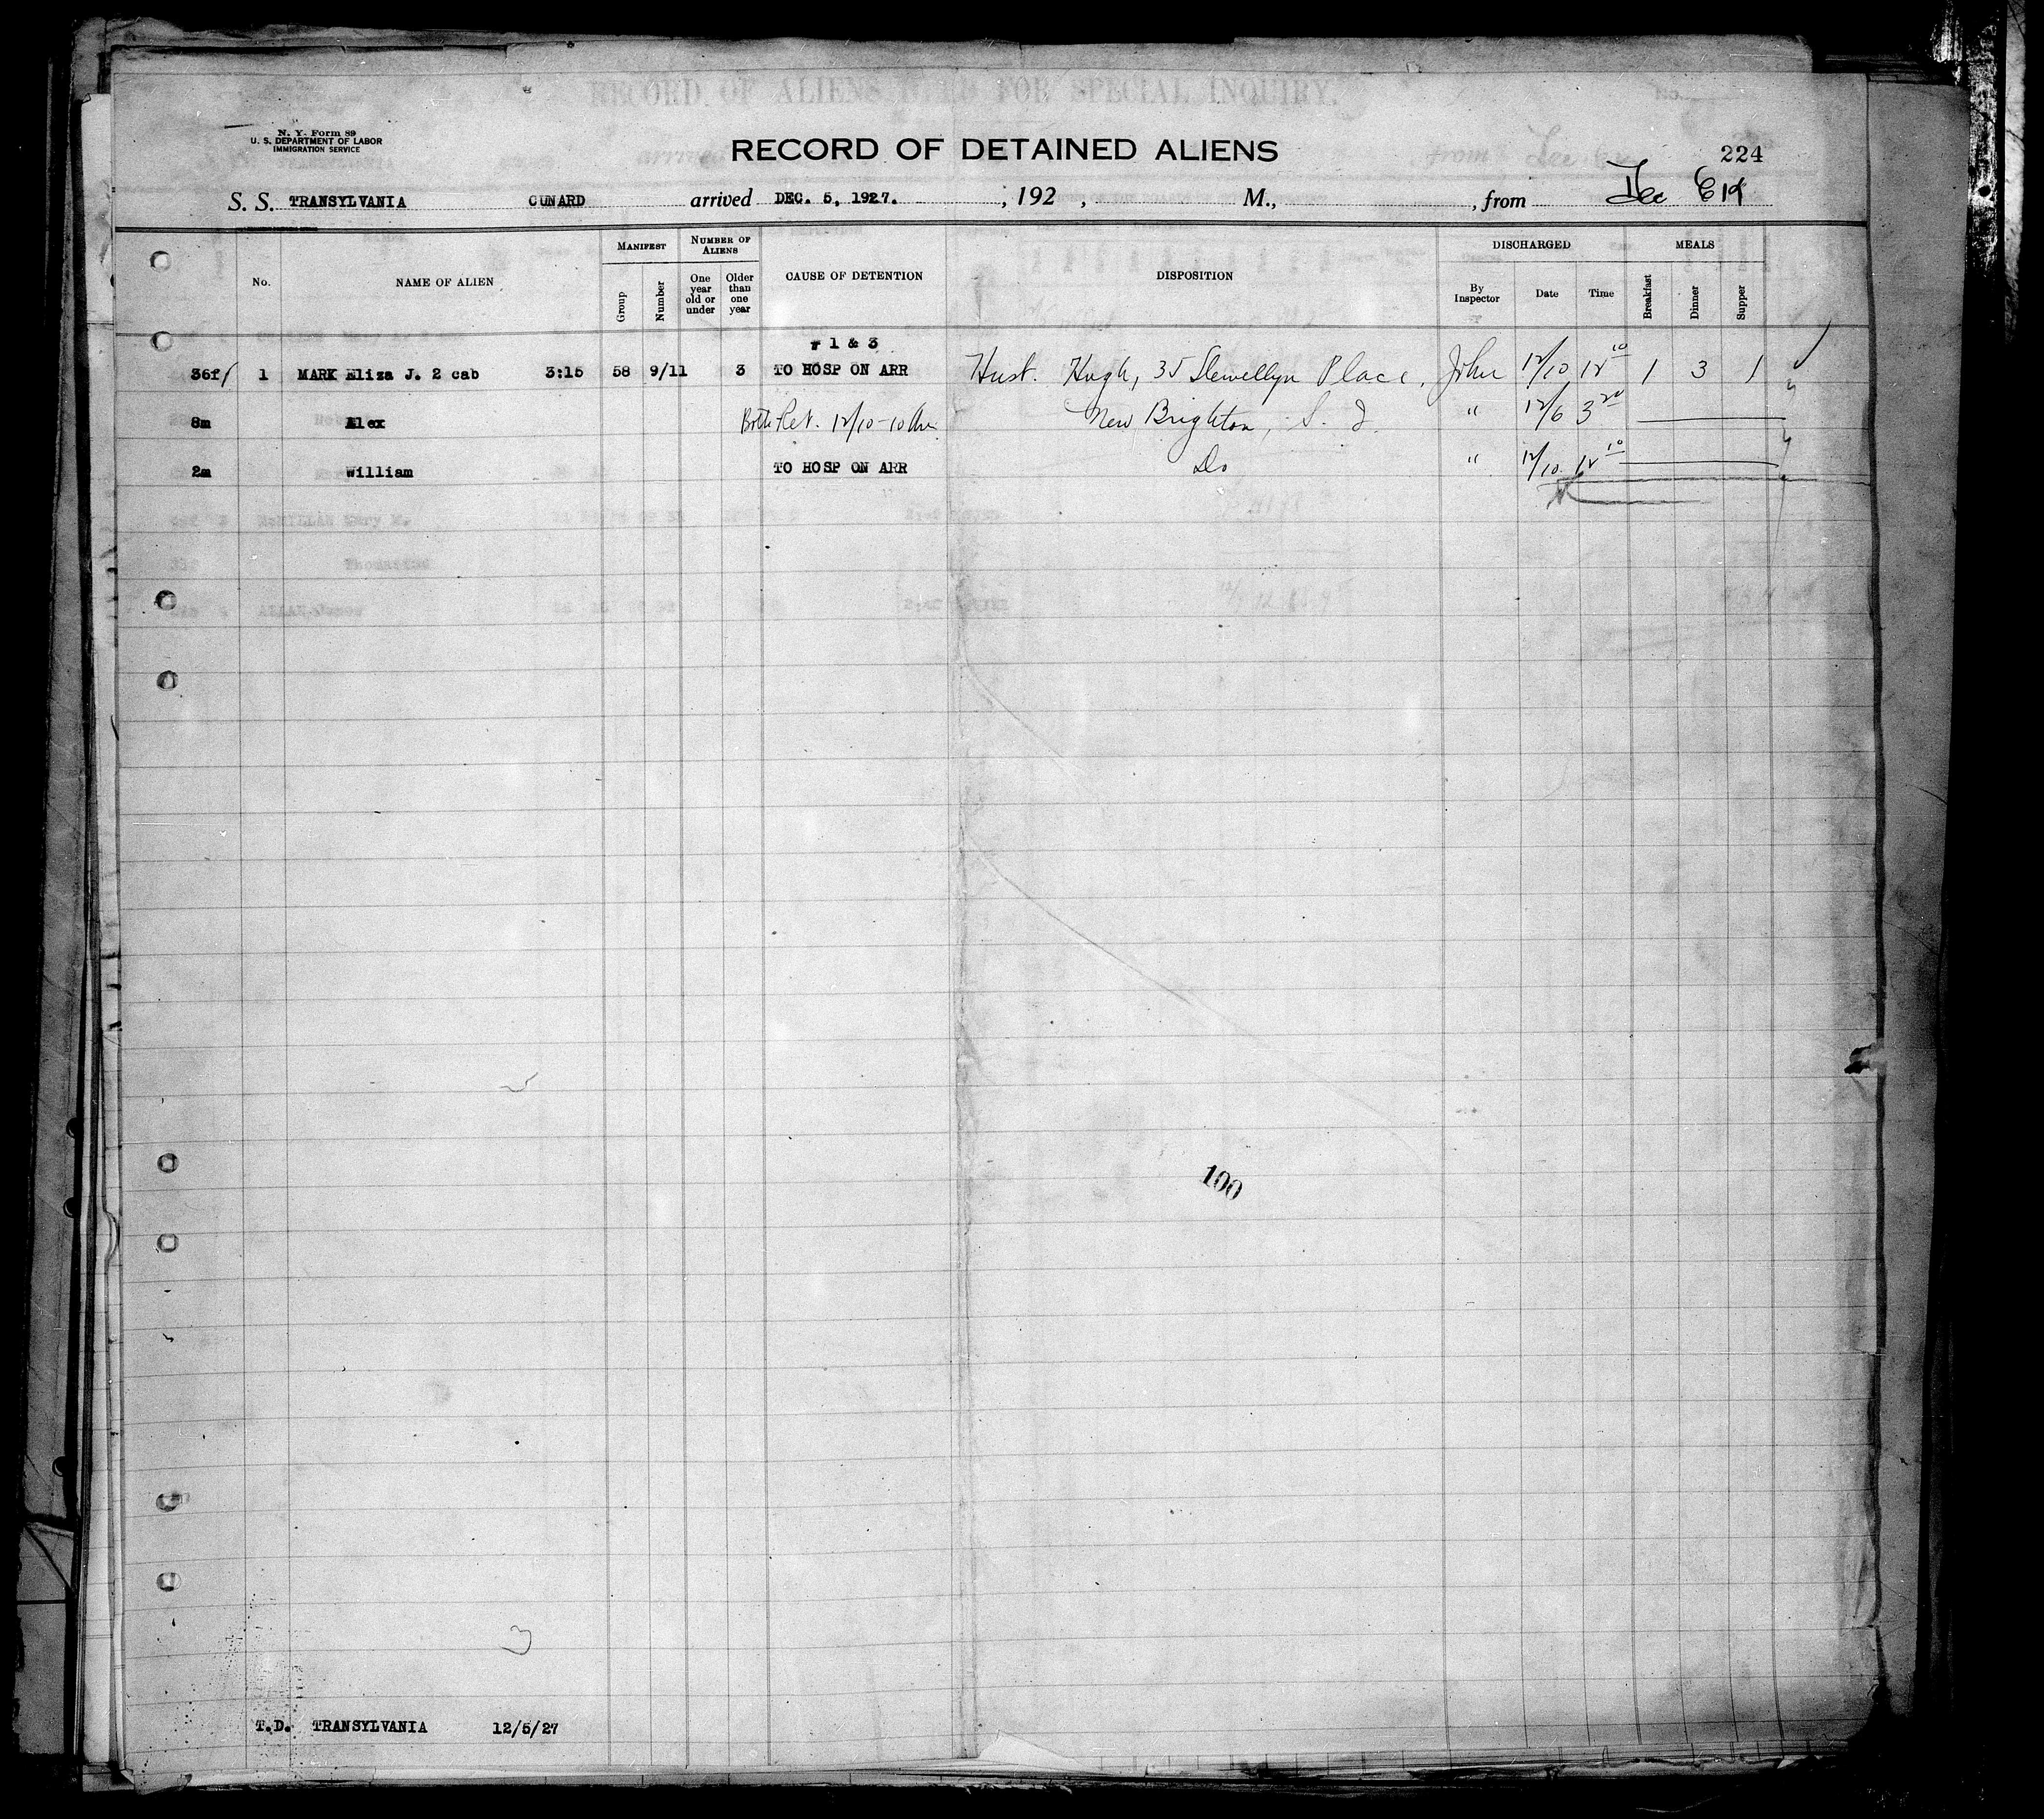 N. Y. Form 89
U. S. DEPARTMENT OF LABOR
IMMIGRATION SERVICE
RECORD OF ALIENS HELD FOR SPECIAL INQUIRY.
RECORD OF DETAINED ALIENS
224
S. S. TRANSYLVANIA CUNARD arrived DEC. 5, 1927. , 192 , M., , from Dec
No. NAME OF ALIEN MANIFEST Group Number NUMBER OF ALIENS One year old or under Older than one year CAUSE OF DETENTION DISPOSITION DISCHARGED By Inspector Date Time MEALS Breakfast Dinner Supper
1 & 3
36f 1 MARK Eliza J. 2 cab 3:15 58 9/11 3 TO HOSP ON ARR Hust. Hugh, 35 Llewellyn Place, John 12/10 12 10 1 3 1
8m Alex Both Ret. 12/10-10 New Brighton, S. I. " 12/6 3 20
2m William TO HOSP ON ARR Do " 12/10 12 10
McMILLAN Mary M.
Thomasina
ALLAN, James
100
3
T.D. TRANSYLVANIA 12/5/27